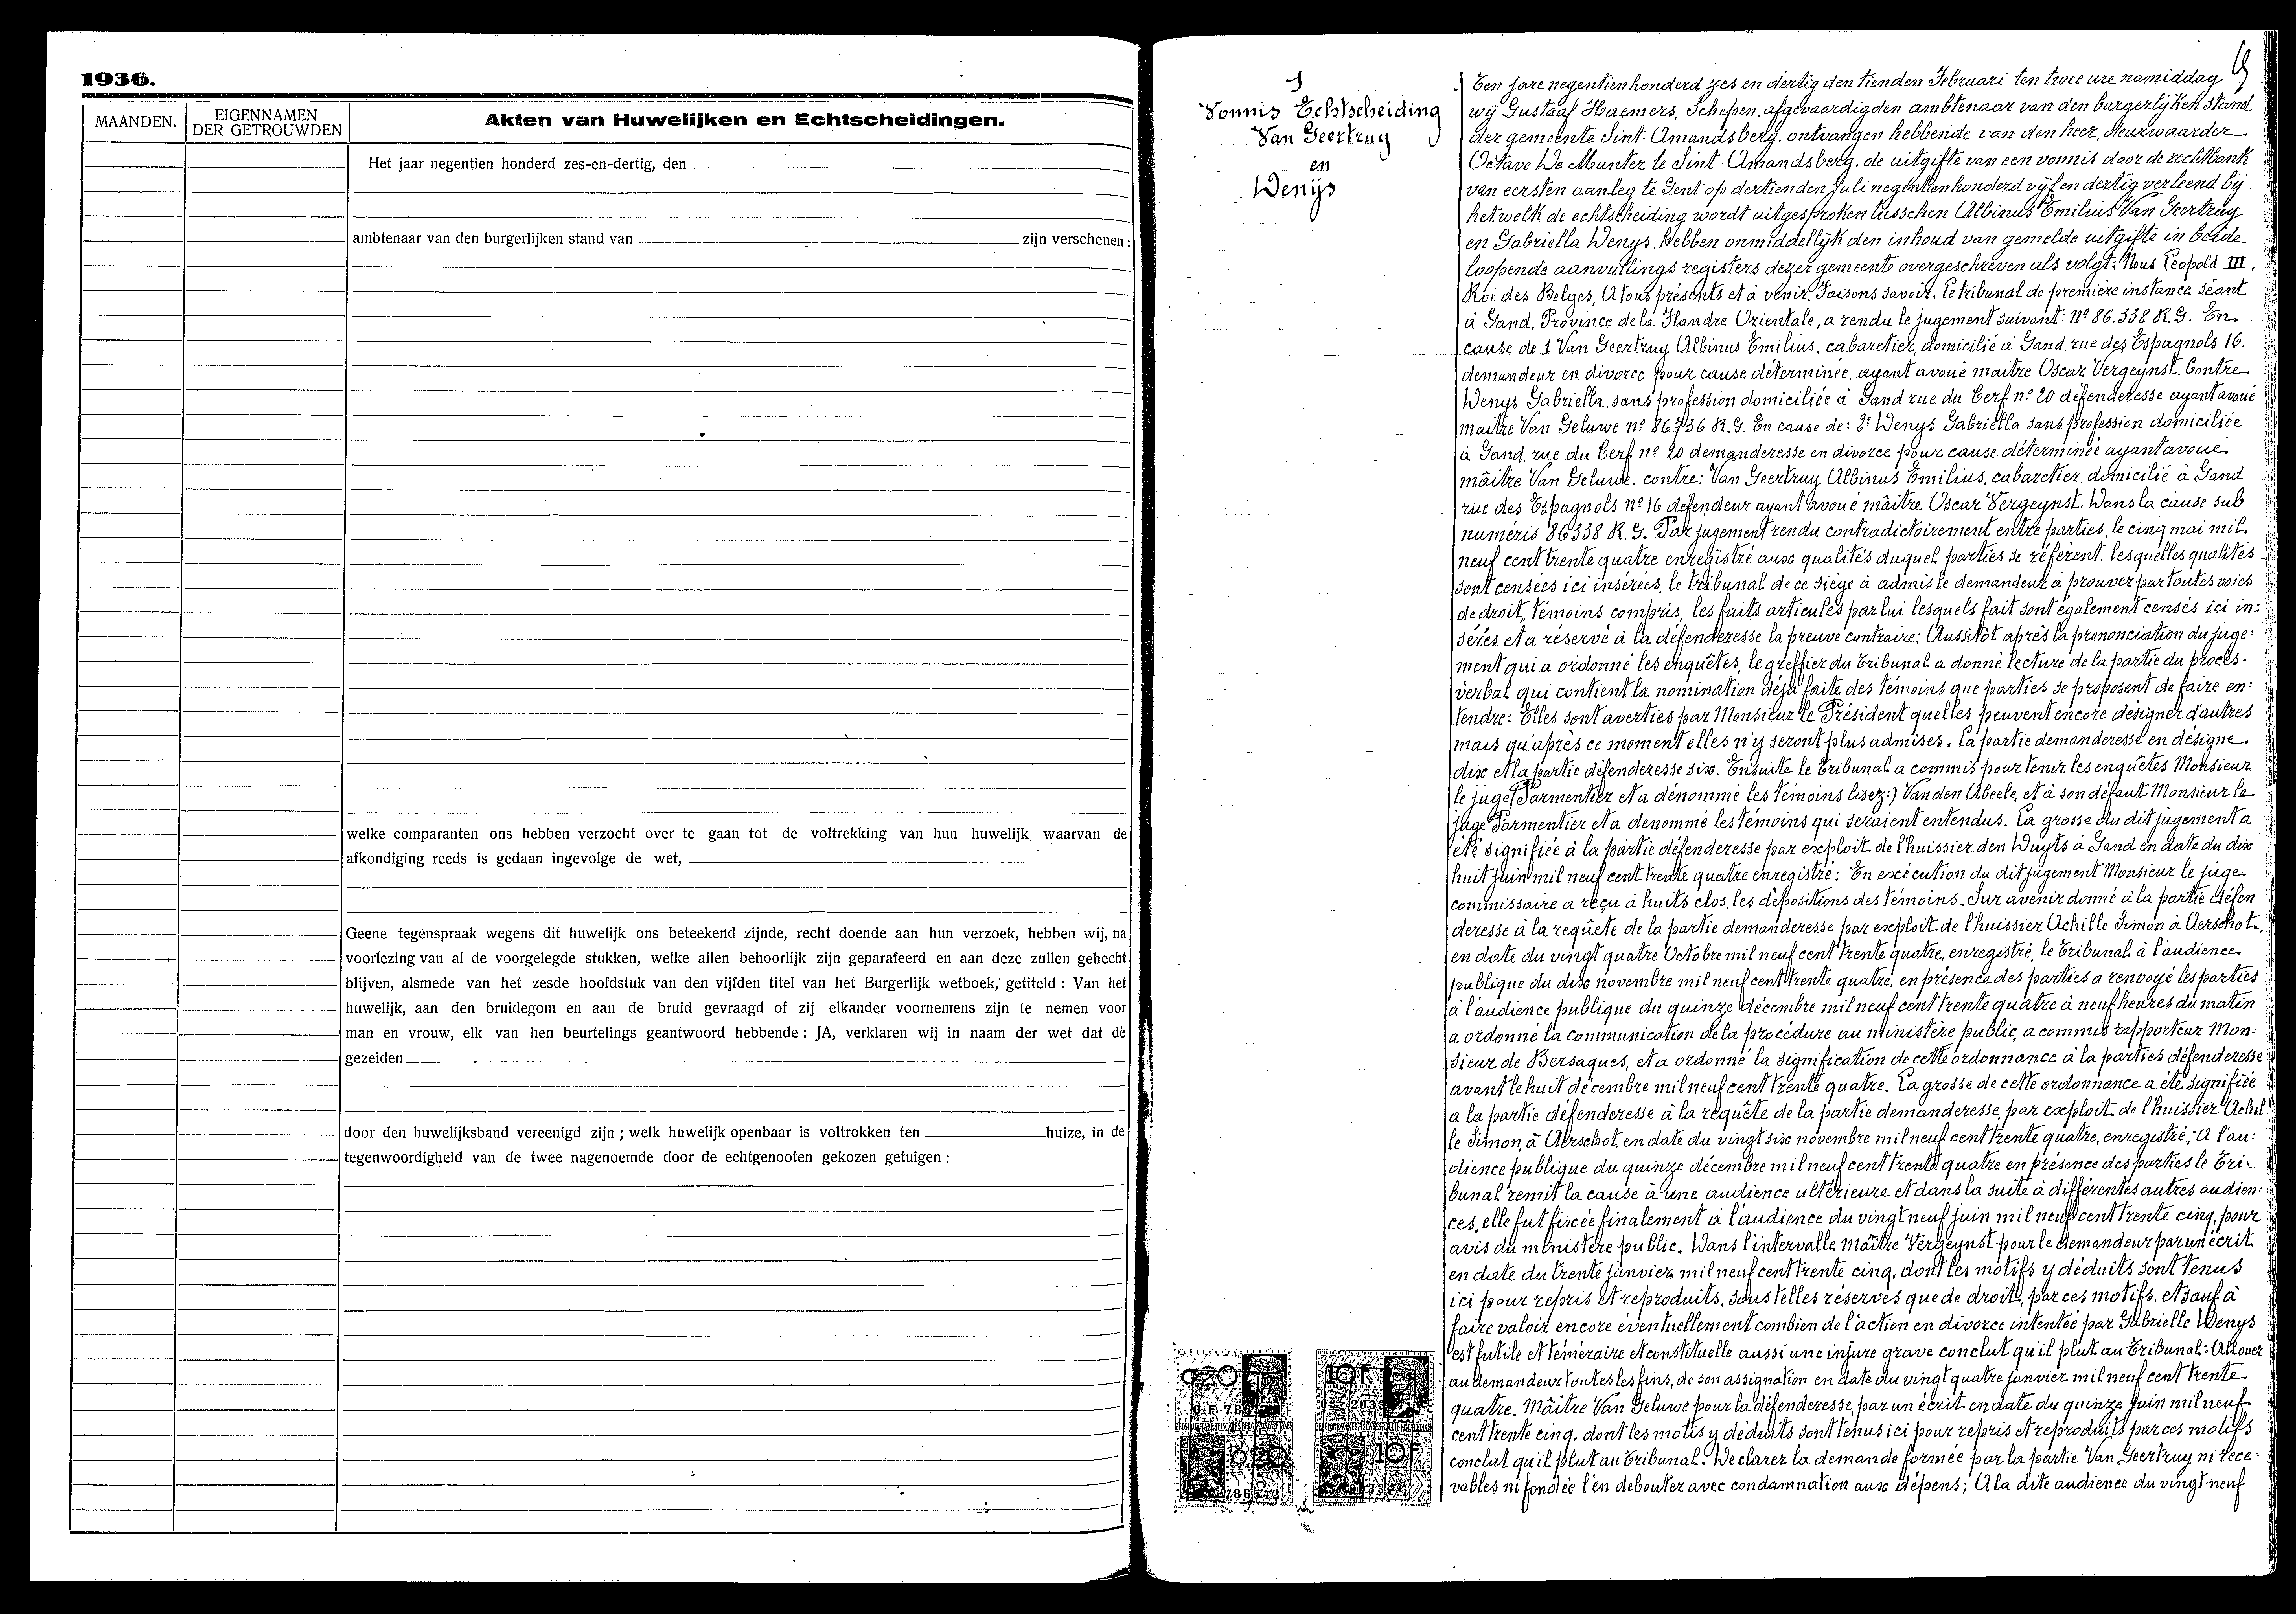 1936.
MAANDEN.
EIGENNAMEN
DER GETROUWDEN
Akten van Huwelijken en Echtscheidingen.
Het jaar negentien honderd zes-en-dertig, den
ambtenaar van den burgerlijken stand van zijn verschenen :
welke comparanten ons hebben verzocht over te gaan tot de voltrekking van hun huwelijk, waarvan de
afkondiging reeds is gedaan ingevolge de wet,
Geene tegenspraak wegens dit huwelijk ons beteekend zijnde, recht doende aan hun verzoek, hebben wij, na
voorlezing van al de voorgelegde stukken, welke allen behoorlijk zijn geparafeerd en aan deze zullen gehecht
blijven, alsmede van het zesde hoofdstuk van den vijfden titel van het Burgerlijk wetboek, getiteld : Van het
huwelijk, aan den bruidegom en aan de bruid gevraagd of zij elkander voornemens zijn te nemen voor
man en vrouw, elk van hen beurtelings geantwoord hebbende : JA, verklaren wij in naam der wet dat de
gezeiden
door den huwelijksband vereenigd zijn ; welk huwelijk openbaar is voltrokken ten huize, in de
tegenwoordigheid van de twee nagenoemde door de echtgenooten gekozen getuigen :
1
Vonnis Echtscheiding
Van Geertruy
en
Wenys
Een jare negentienhonderd zes en dertig den tienden Februari ten twee ure namiddag
wij Gustaaf Haemers, Schepen, afgevaardigden ambtenaar van den burgerlijken stand
der gemeente Sint-Amandsberg, ontvangen hebbende van den heer, deurwaarder
Octave De Munter te Sint-Amandsberg, de uitgifte van een vonnis door de rechtbank
van eersten aanleg te Gent op dertienden Juli negentienhonderd vijf en dertig verleend bij
hetwelk de echtscheiding wordt uitgesproken tusschen Albinus Emilius Van Geertruy
en Gabriella Wenys, hebben onmiddellijk den inhoud van gemelde uitgifte in beide
loopende aanvullings registers dezer gemeente overgeschreven als volgt: Nous Léopold III,
Roi des Belges, A tous présents et à venir, Faisons savoir. Le tribunal de première instance séant
à Gand, Province de la Flandre Orientale, a rendu le jugement suivant: N° 86.338 R.G. En
cause de 1 Van Geertruy Albinus Emilius, cabaretier, domicilié à Gand, rue des Espagnols 16.
demandeur en divorce pour cause déterminée, ayant avoué maître Oscar Vergeynst. Contre
Wenys Gabriella, sans profession domiciliée à Gand rue du Cerf n° 20 défenderesse ayant avoué
maître Van Geluwe n° 86736 R.G. En cause de: 2° Wenys Gabriella sans profession domiciliée
à Gand, rue du Cerf n° 20 demanderesse en divorce pour cause déterminée ayant avoué
mâitre Van Geluwe. contre: Van Geertruy Albinus Emilius, cabaretier, domicilié à Gand
rue des Espagnols n° 16 défendeur ayant avoué mâitre Oscar Vergeynst. Dans la cause sub
numéris 86338 R.G. Par jugement rendu contradictoirement entre parties, le cinq mai mil
neuf cent trente quatre enregistré aux qualités duquel parties se réfèrent, lesquelles qualités
sont censées ici insérées, le tribunal de ce siège à admis le demandeur à prouver par toutes voies
de droit, témoins compris, les faits articulés par lui lesquels fait sont également censés ici in:
sérés et a réservé à la défenderesse la preuve contraire: Aussitôt après la prononciation du juge:
ment qui a ordonné les enquêtes, le greffier du tribunal a donné lecture de la partie du procès-
verbal qui contient la nomination déjà faite des témoins que parties se proposent de faire en:
tendre: Elles sont averties par Monsieur le Président quelles peuvent encore désigner d'autres
mais qu'après ce moment elles n'y seront plus admises. La partie demanderesse en désigne
dix et la partie défenderesse six. Ensuite le Tribunal a commis pour tenir les enquêtes Monsieur
le juge (Parmentier et a dénommé les témoins lisez:) Vanden Abeele, et à son défaut Monsieur le
juge Parmentier et a dénommé les témoins qui seraient entendus. La grosse du dit jugement a
été signifiée à la partie défenderesse par exploit de l'huissier den Duyts à Gand en date du dix
huit juin mil neuf cent trente quatre enregistré: En exécution du dit jugement Monsieur le juge
commissaire a reçu à huits clos, les dépositions des témoins. Sur avenir donné à la partie défen
deresse à la requête de la partie demanderesse par exploit de l'huissier Achille Simon à Aerschot,
en date du vingt quatre Octobre mil neuf cent trente quatre, enregistré, le Tribunal à l'audience
publique du dix novembre mil neuf cent trente quatre, en présence des parties a renvoyé les parties
à l'audience publique du quinze décembre mil neuf cent trente quatre à neuf heures du matin
a ordonné la communication de la procédure au ministère public, a commis rapporteur Mon:
sieur de Bersaques, et a ordonné la signification de cette ordonnance à la parties défenderesse
avant le huit décembre mil neuf cent trente quatre. La grosse de cette ordonnance a été signifiée
a la partie défenderesse à la requête de la partie demanderesse, par exploit de l'huissier Achil
le Simon, à Aerschot, en date du vingt six novembre mil neuf cent trente quatre, enregistré; A l'au:
dience publique du quinze décembre mil neuf cent trente quatre en présence des parties le Tri:
bunal remit la cause à une audience ultérieure et dans la suite à différentes autres audien:
ces, elle fut fixée finalement à l'audience du vingt neuf juin mil neuf cent trente cinq, pour
avis du ministère public. Dans l'intervalle Maître Vergeynst pour le demandeur par un écrit
en date du trente janvier mil neuf cent trente cinq, dont les motifs y déduits sont tenus
ici pour repris et reproduits, sous telles réserves que de droit, par ces motifs, et sauf à
faire valoir encore éventuellement combien de l'action en divorce intentée par Gabrielle Wenys
est futile et téméraire et constituelle aussi une injure grave conclut qu'il plut au Tribunal: Allouer
au demandeur toutes les fins, de son assignation en date du vingt quatre janvier mil neuf cent trente
quatre. Mâitre Van Geluwe pour la défenderesse, par un écrit en date du quinze juin mil neuf
cent trente cinq, dont les motis y déduits sont tenus ici pour repris et reproduits par ces motifs
conclut qu'il plut au Tribunal: Declarer la demande formée par la partie Van Geertruy ni rece:
vables ni fondée l'en debouter avec condamnation aux dépens; A la dite audience du vingt-neuf
0.20
10F
0.20
10F